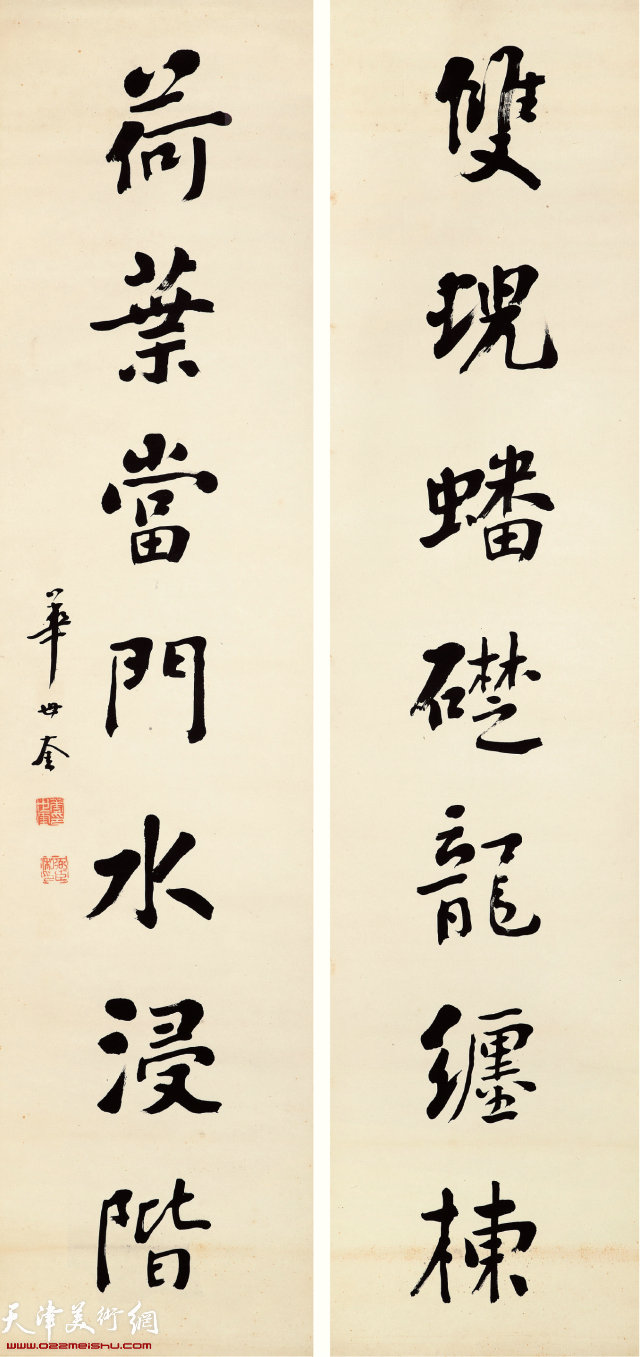 雙蜺蟠礎龍纏棟
荷葉當門水浸階
華世奎
天津美術網
www.022meishu.com